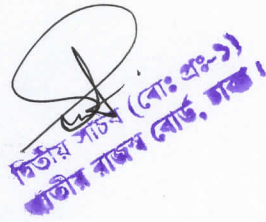 দ্বিতীয় সচিব (বোঃ প্রঃ-১)
জাতীয় রাজস্ব বোর্ড, ঢাকা।